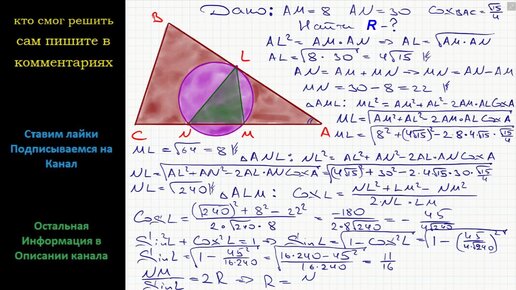 кто смог решить
сам пишите в
комментариях
Ставим лайки
Подписываемся на
Канал
Остальная
Информация в
Описании канала
B
L
C
N
M
A
Дано: AM=8 AN=30 Cos∠BAC=√15/4
Найти R-?
AL²=AM·AN ⇒ AL=√AM·AN
AL=√8·30=4√15
AN=AM+MN ⇒ MN=AN-AM
MN=30-8=22
△AML: ML²=AM²+AL²-2AM·ALCosA
ML=√AM²+AL²-2AM·ALCosA
ML=√8²+(4√15)²-2·8·4√15·√15/4
ML=√64=8 △ANL: NL²=AL²+AN²-2AL·ANCosA
NL=√AL²+AN²-2AL·ANCosA=√(4√15)²+30²-2·4√15·30·√15/4
NL=√240 △ALM: CosL=NL²+LM²-NM²/2NL·LM
CosL=(√240)²+8²-22²/2·√240·8=-180/2·8√240=-45/4√240
Sin²L+Cos²L=1 ⇒ SinL=√1-Cos²L=√1-(45/4√240)²
SinL=√1-45²/16·240=√16·240-45²/16·240=11/16
NM/SinL=2R ⇒ R=N